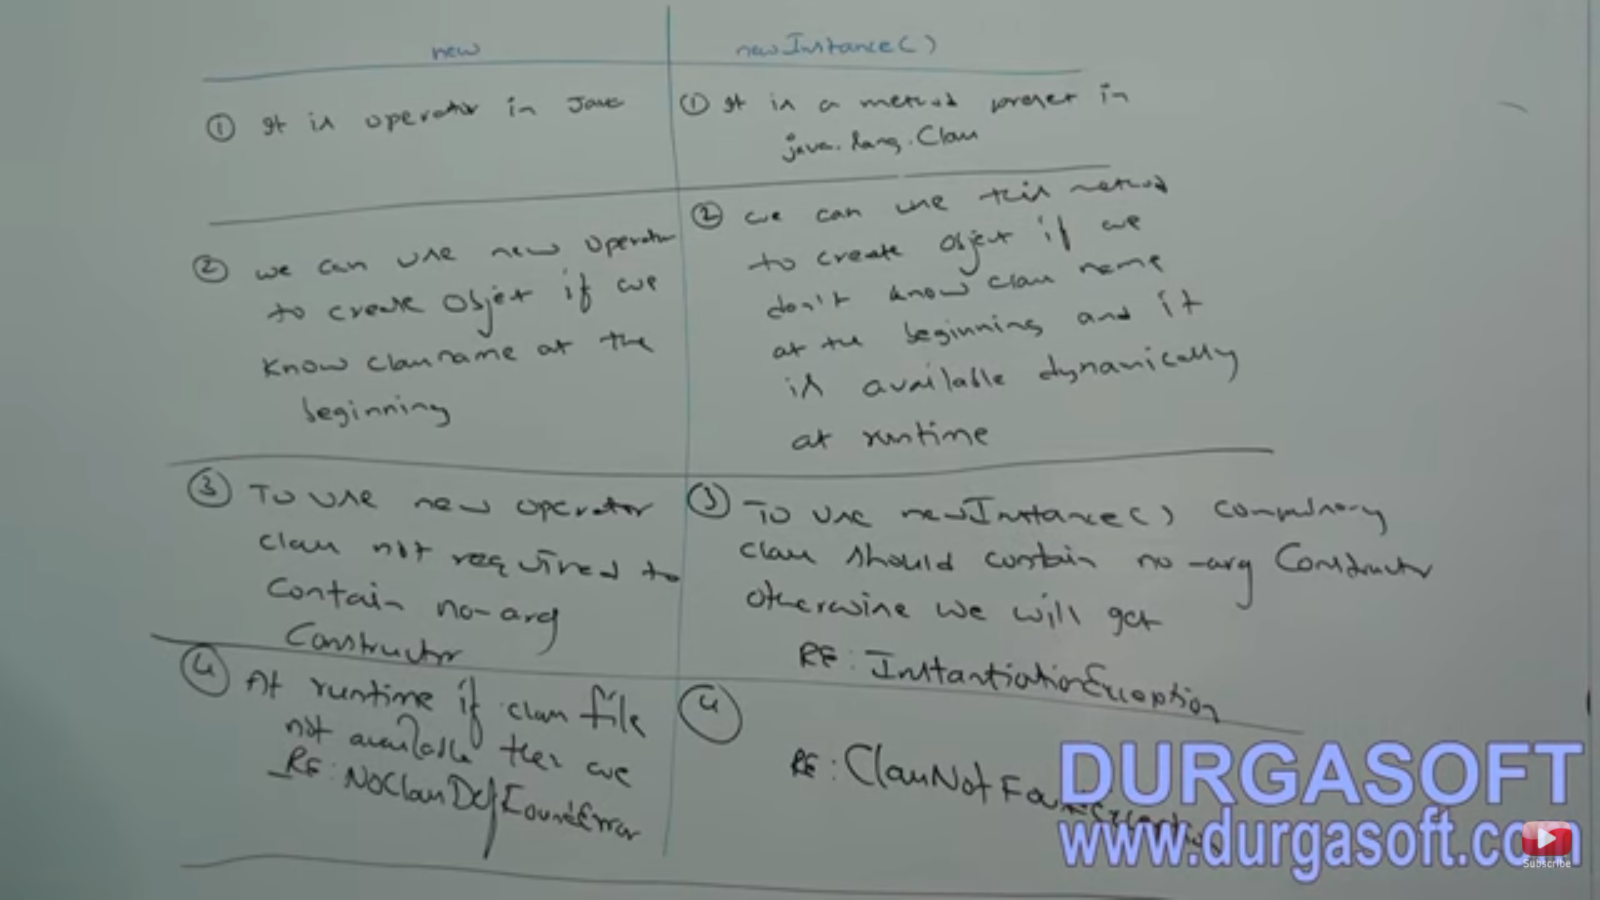 new
newInstance()
① It is operator in Java
① It is a method present in
java.lang.Class
② we can use new operator
to create Object if we
know class name at the
beginning
② we can use this method
to create object if we
don't know class name
at the beginning and it
is available dynamically
at runtime
③ To use new operator
class not required to
contain no-arg
Constructor
③ To use newInstance() compulsory
class should contain no-arg Constructor
otherwise we will get
RE: InstantiationException
④ At runtime if class file
not available then we
RE: NoClassDefFoundError
④
RE: ClassNotFoundException
DURGASOFT
www.durgasoft.com
Subscribe